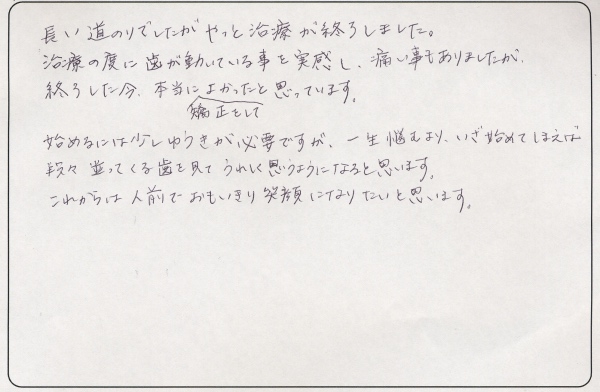 長い道のりでしたがやっと治療が終了しました。
治療の度に歯が動いている事を実感し、痛い事もありましたが、
終了した今、本当によかったと思っています。
矯正をして
始めるには少しゆうきが必要ですが、一生悩むより、いざ始めてしまえば
段々並ってくる歯を見てうれしく思うようになると思います。
これからは人前でおもいきり笑顔になりたいと思います。